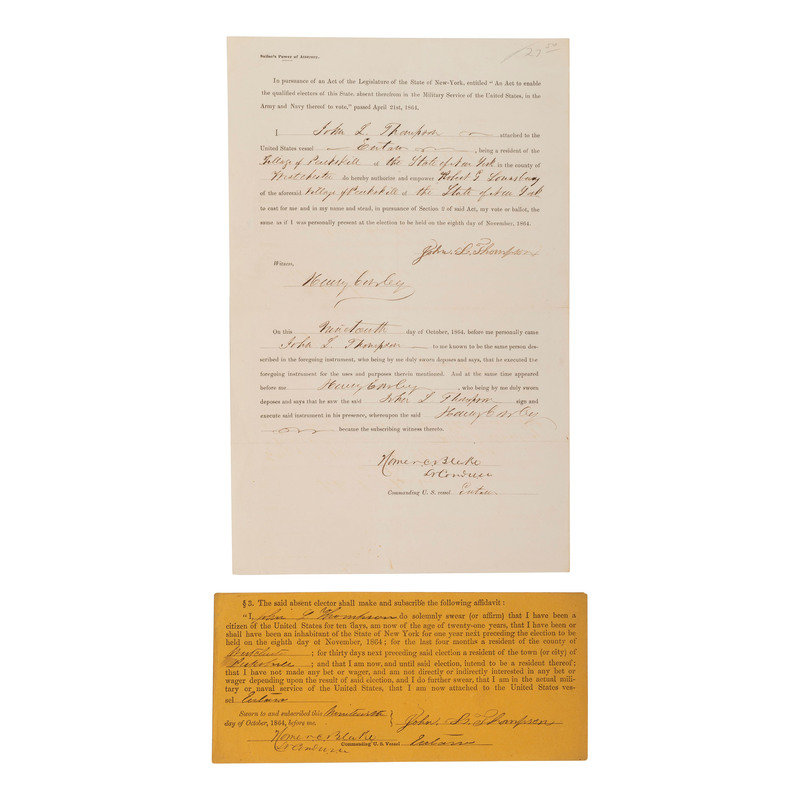 27 50
Sailor's Power of Attorney.
In pursuance of an Act of the Legislature of the State of New-York, entitled "An Act to enable
the qualified electors of this State, absent therefrom in the Military Service of the United States, in the
Army and Navy thereof to vote," passed April 21st, 1864.
I John L Thompson attached to the
United States vessel Eutaw , being a resident of the
Village of Peekskill in the State of New York in the county of
Westchester do hereby authorize and empower Robert F Lounsbury
of the aforesaid Village of Peekskill in the State of New York
to cast for me and in my name and stead, in pursuance of Section 2 of said Act, my vote or ballot, the
same as if I was personally present at the election to be held on the eighth day of November, 1864.
John L. Thompson
Witness,
Henry Cowley
On this Nineteenth day of October, 1864, before me personally came
John L Thompson to me known to be the same person des-
cribed in the foregoing instrument, who being by me duly sworn deposes and says, that he executed the
foregoing instrument for the uses and purposes therein mentioned. And at the same time appeared
before me Henry Cowley , who being by me duly sworn
deposes and says that he saw the said John L Thompson sign and
execute said instrument in his presence, whereupon the said Henry Cowley
became the subscribing witness thereto.
Homer C Blake
Lt Comdr
Commanding U. S. vessel Eutaw
§ 3. The said absent elector shall make and subscribe the following affidavit :
"I, John L Thompson do solemnly swear (or affirm) that I have been a
citizen of the United States for ten days, am now of the age of twenty-one years, that I have been or
shall have been an inhabitant of the State of New York for one year next preceding the election to be
held on the eighth day of November, 1864 ; for the last four months a resident of the county of
Westchester ; for thirty days next preceding said election a resident of the town (or city) of
Peekskill ; and that I am now, and until said election, intend to be a resident thereof ;
that I have not made any bet or wager, and am not directly or indirectly interested in any bet or
wager depending upon the result of said election, and I do further swear, that I am in the actual mili-
tary or naval service of the United States, that I am now attached to the United States ves-
sel Eutaw
Sworn to and subscribed this Nineteenth
day of October, 1864, before me.
John L. Thompson
Homer C Blake
Lt Comdr
Commanding U. S. Vessel Eutaw